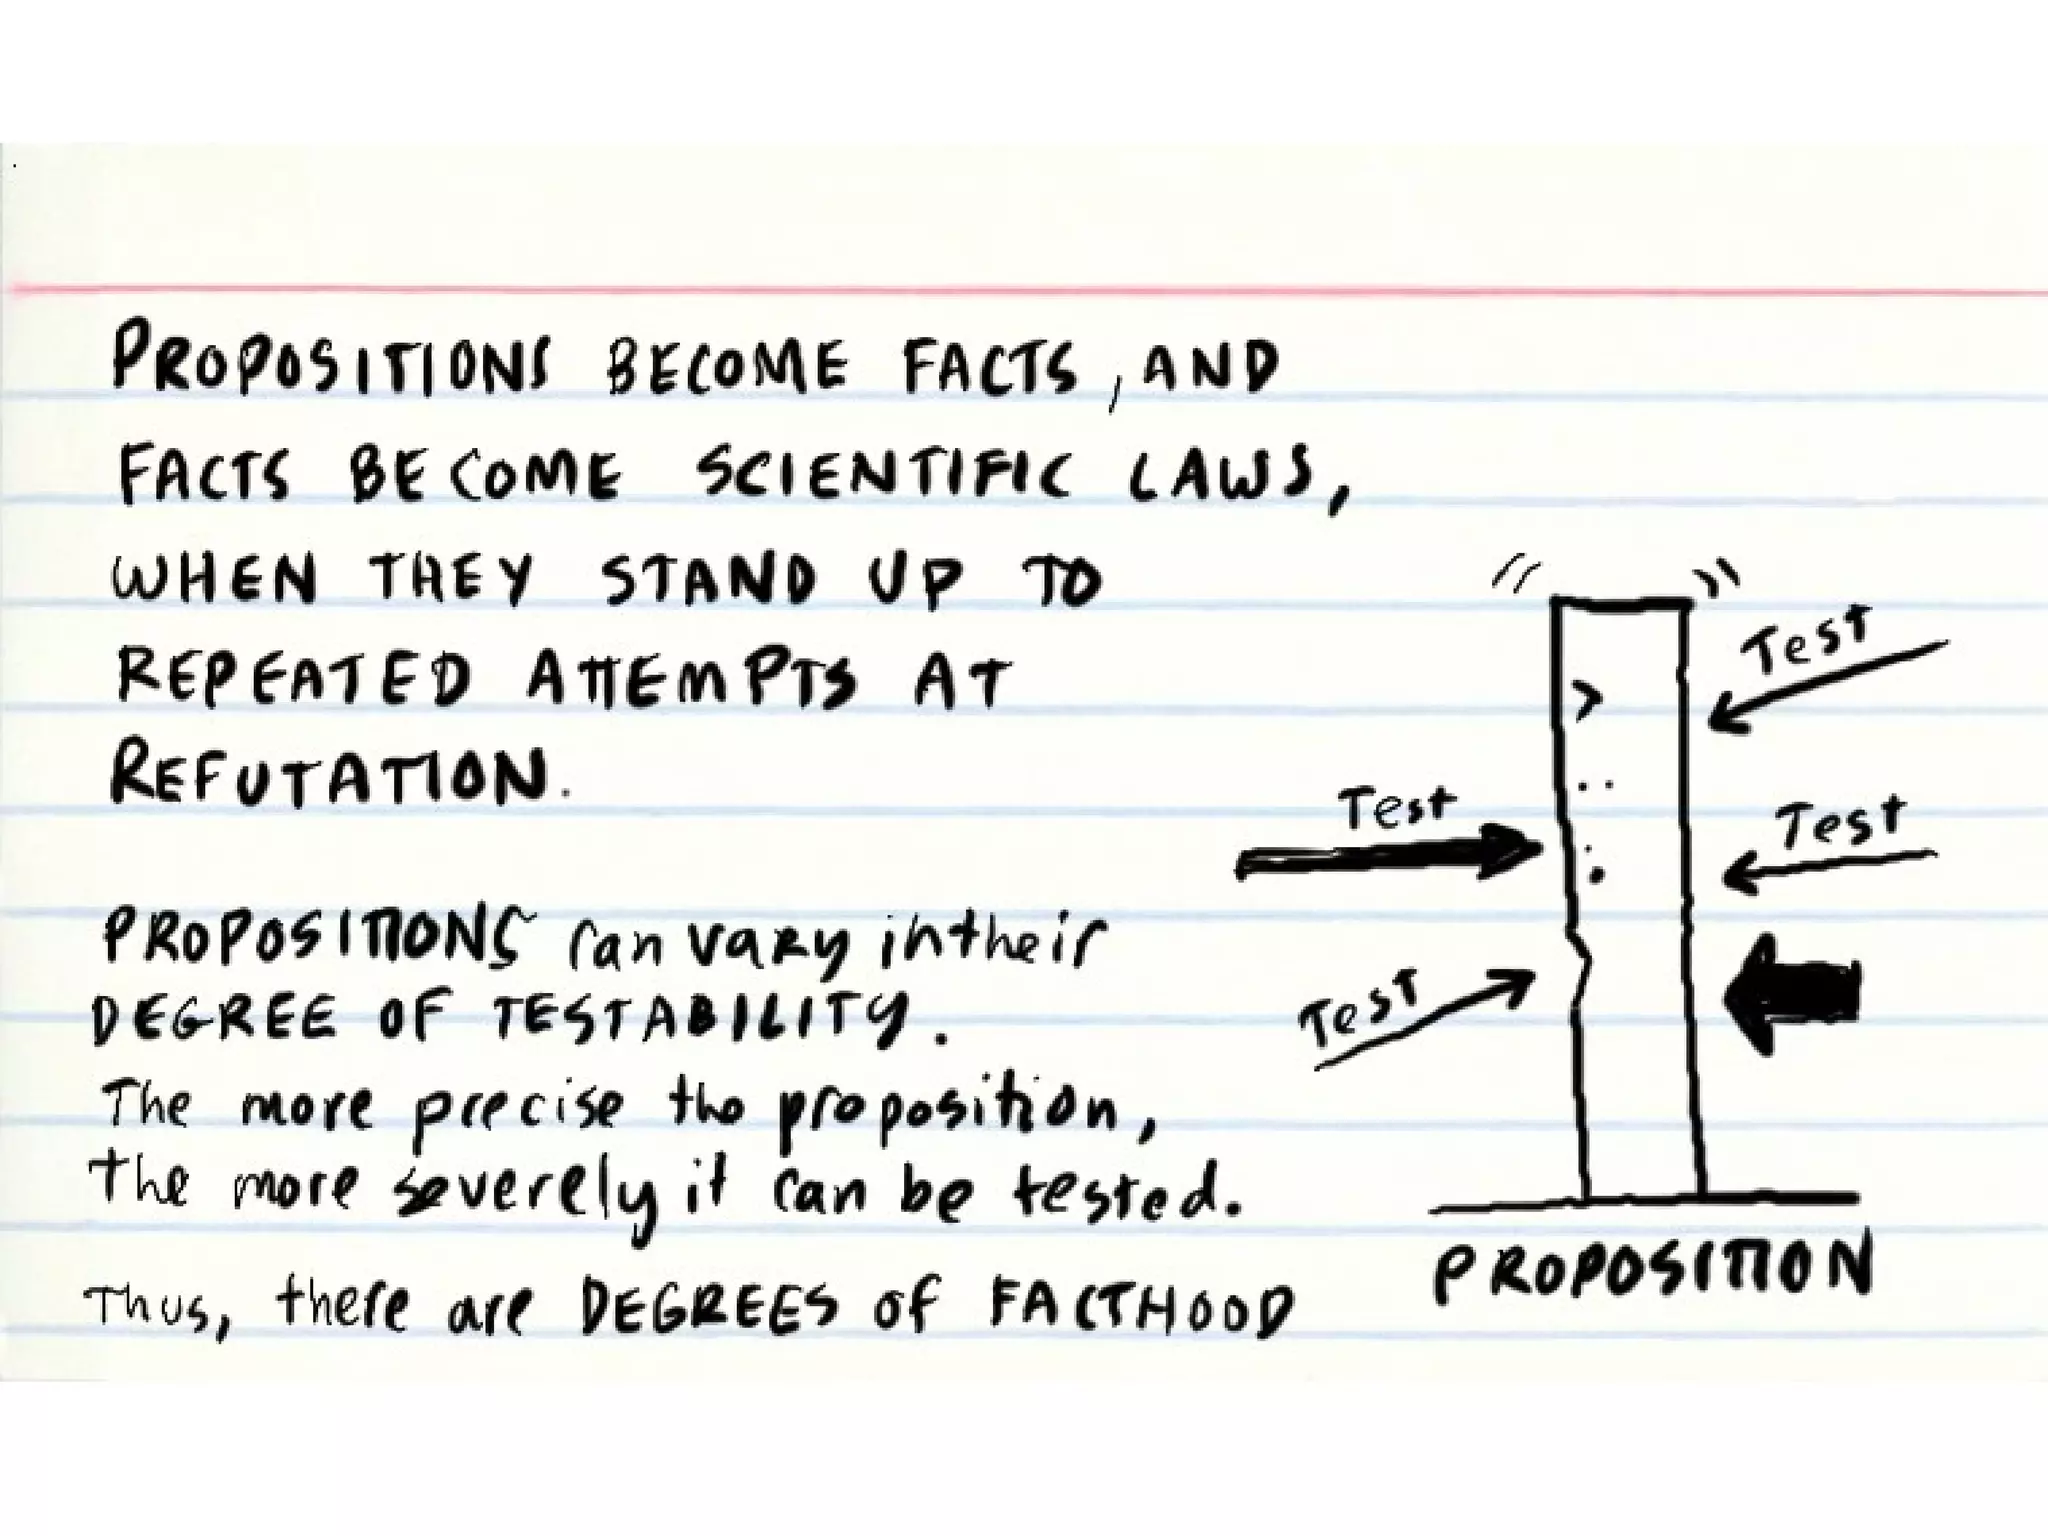 PROPOSITIONS BECOME FACTS, AND
FACTS BECOME SCIENTIFIC LAWS,
WHEN THEY STAND UP TO
REPEATED ATTEMPTS AT
REFUTATION.
PROPOSITIONS can vary in their
DEGREE OF TESTABILITY.
The more precise the proposition,
the more severely it can be tested.
Thus, there are DEGREES of FACTHOOD
Test
Test
Test
Test
PROPOSITION